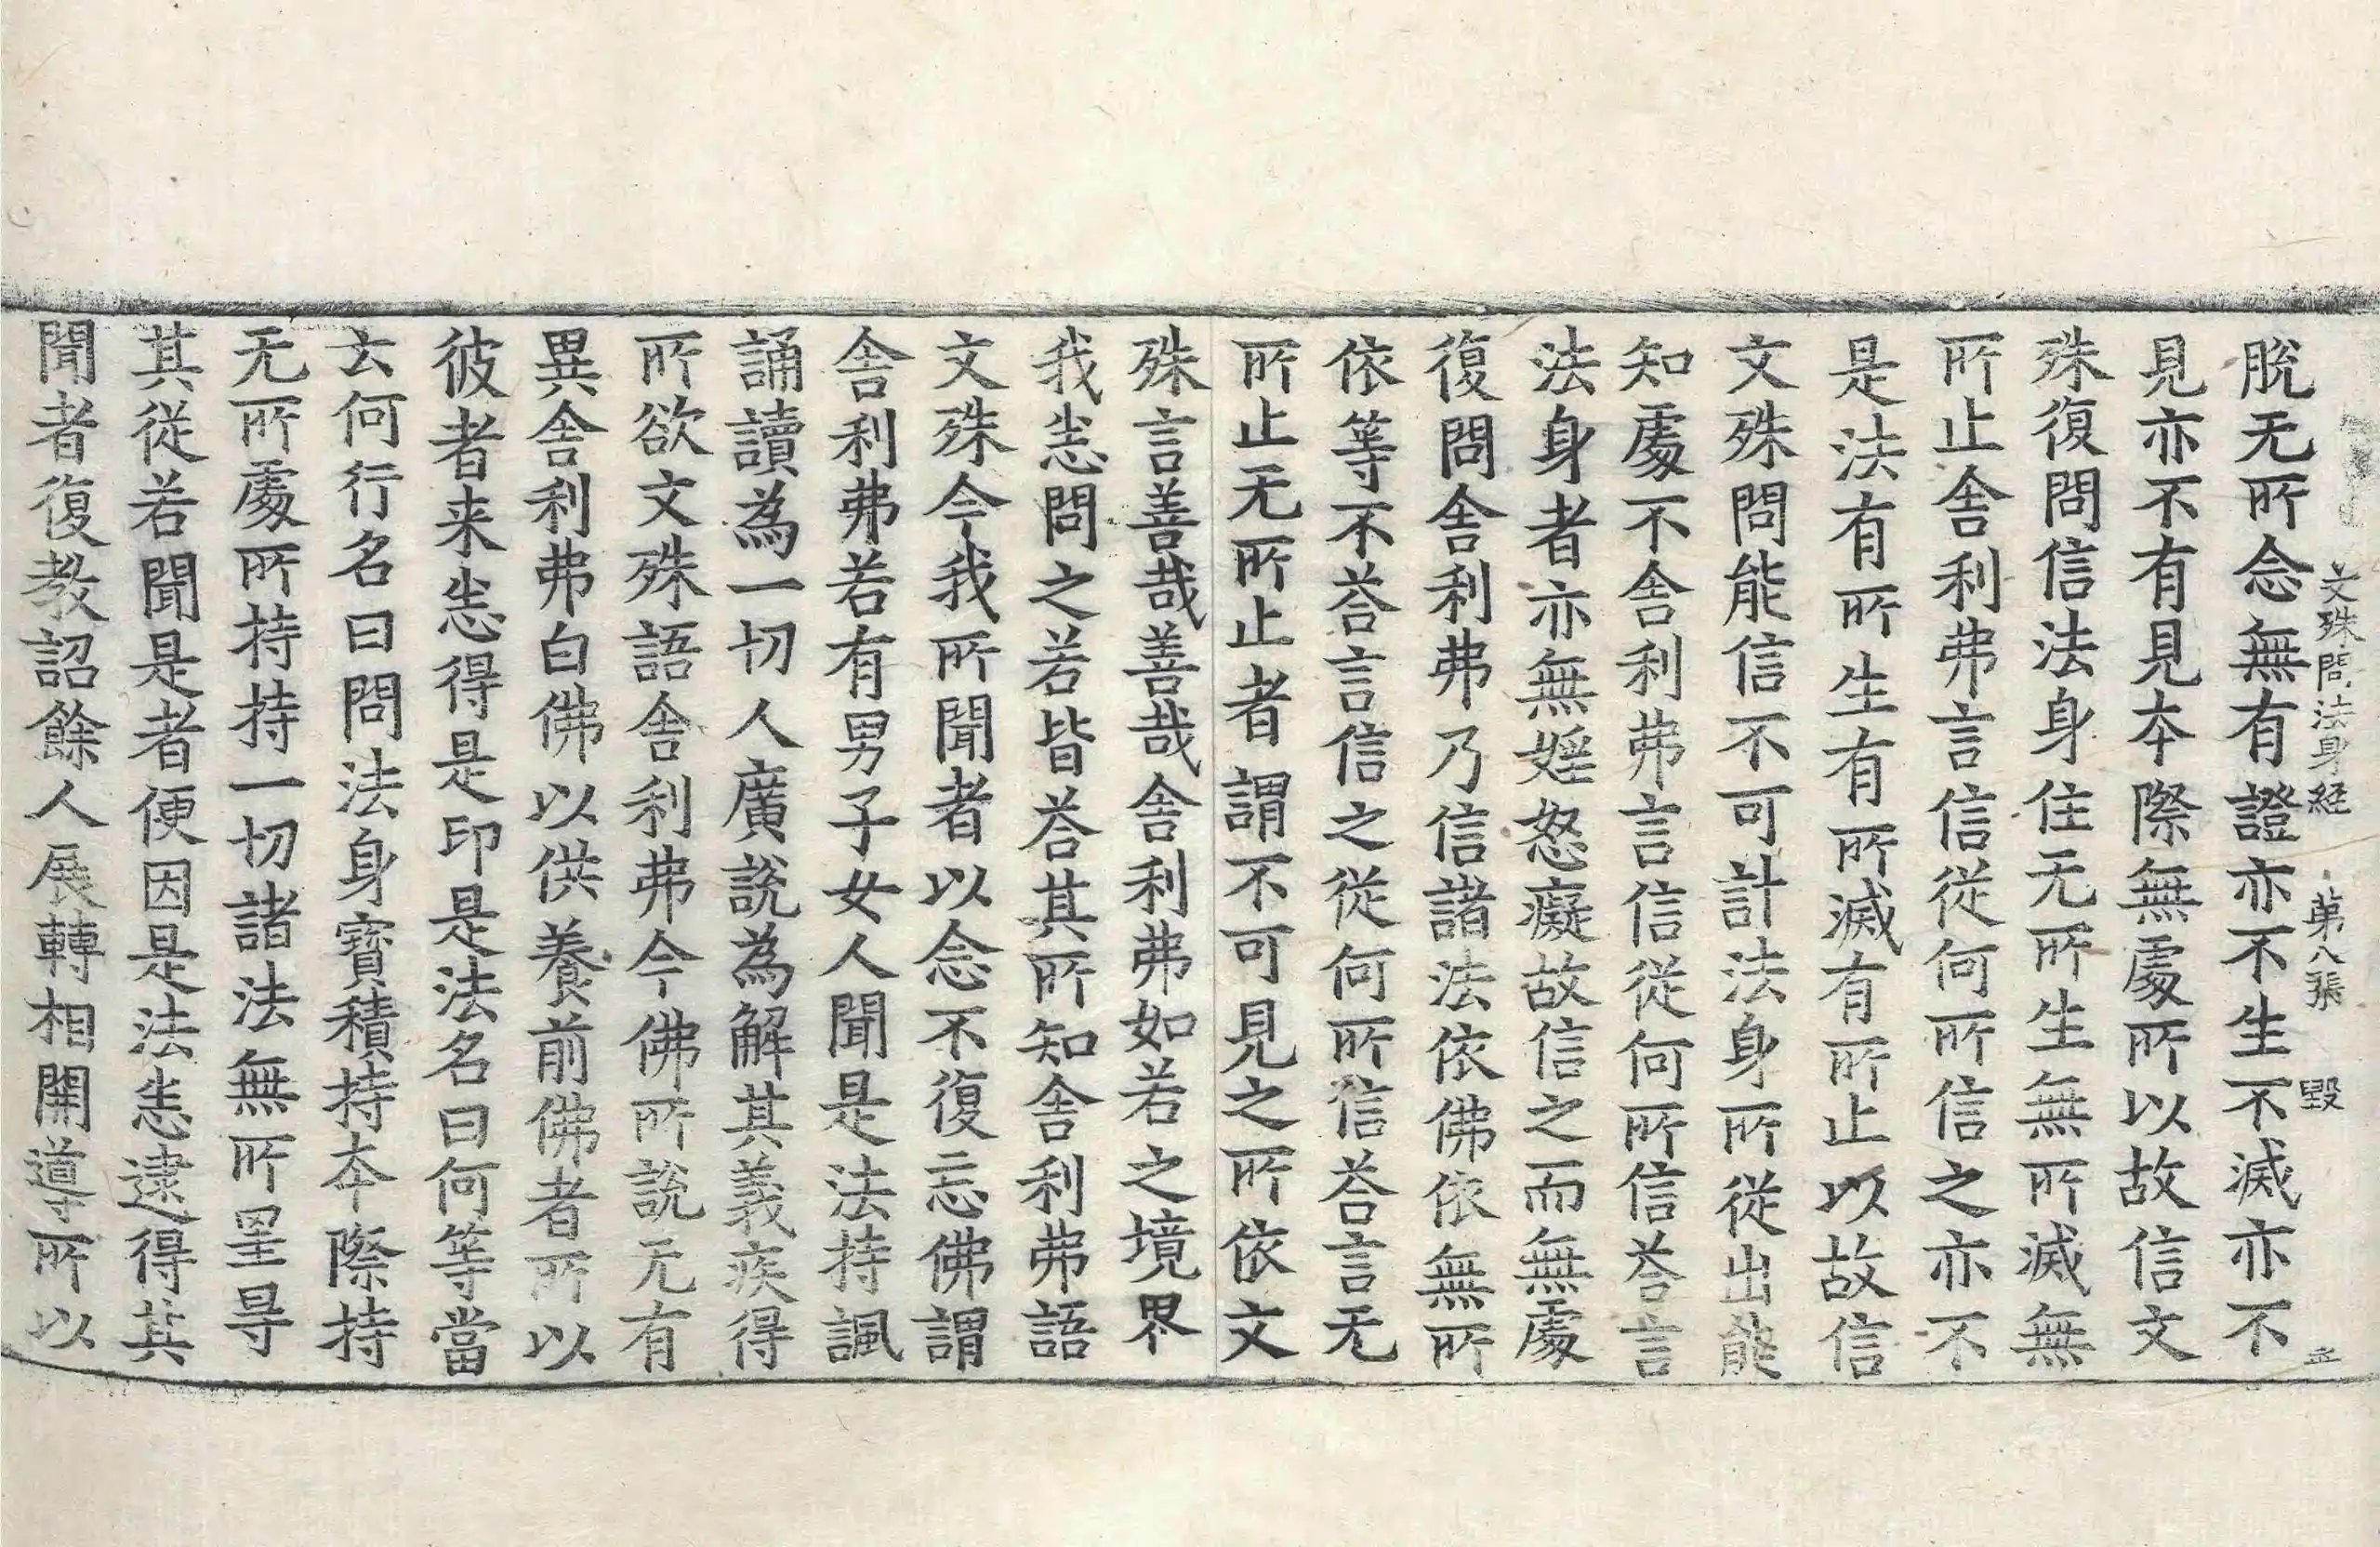 文殊問法身経　第八張　毀
脫无所念無有證亦不生不滅亦不
見亦不有見本際無處所以故信文
殊復問信法身住无所生無所滅無
所止舍利弗言信從何所信之亦不
是法有所生有所滅有所止以故信
文殊問能信不可計法身所從出能
知處不舍利弗言信從何所信荅言
法身者亦無婬怒癡故信之而無處
復問舍利弗乃信諸法依佛依無所
依等不荅言信之從何所信荅言无
所止无所止者謂不可見之所依文
殊言善哉善哉舍利弗如若之境界
我悉問之若皆荅其所知舍利弗語
文殊今我所聞者以念不復忘佛謂
舍利弗若有男子女人聞是法持諷
誦讀為一切人廣說為解其義疾得
所欲文殊語舍利弗今佛所說无有
異舍利弗白佛以供養前佛者所以
彼者来悉得是印是法名曰何等當
云何行名曰問法身寶積持本際持
无所處所持持一切諸法無所罣㝵
其從若聞是者便因是法悉逮得其
聞者復教詔餘人展轉相開導所以